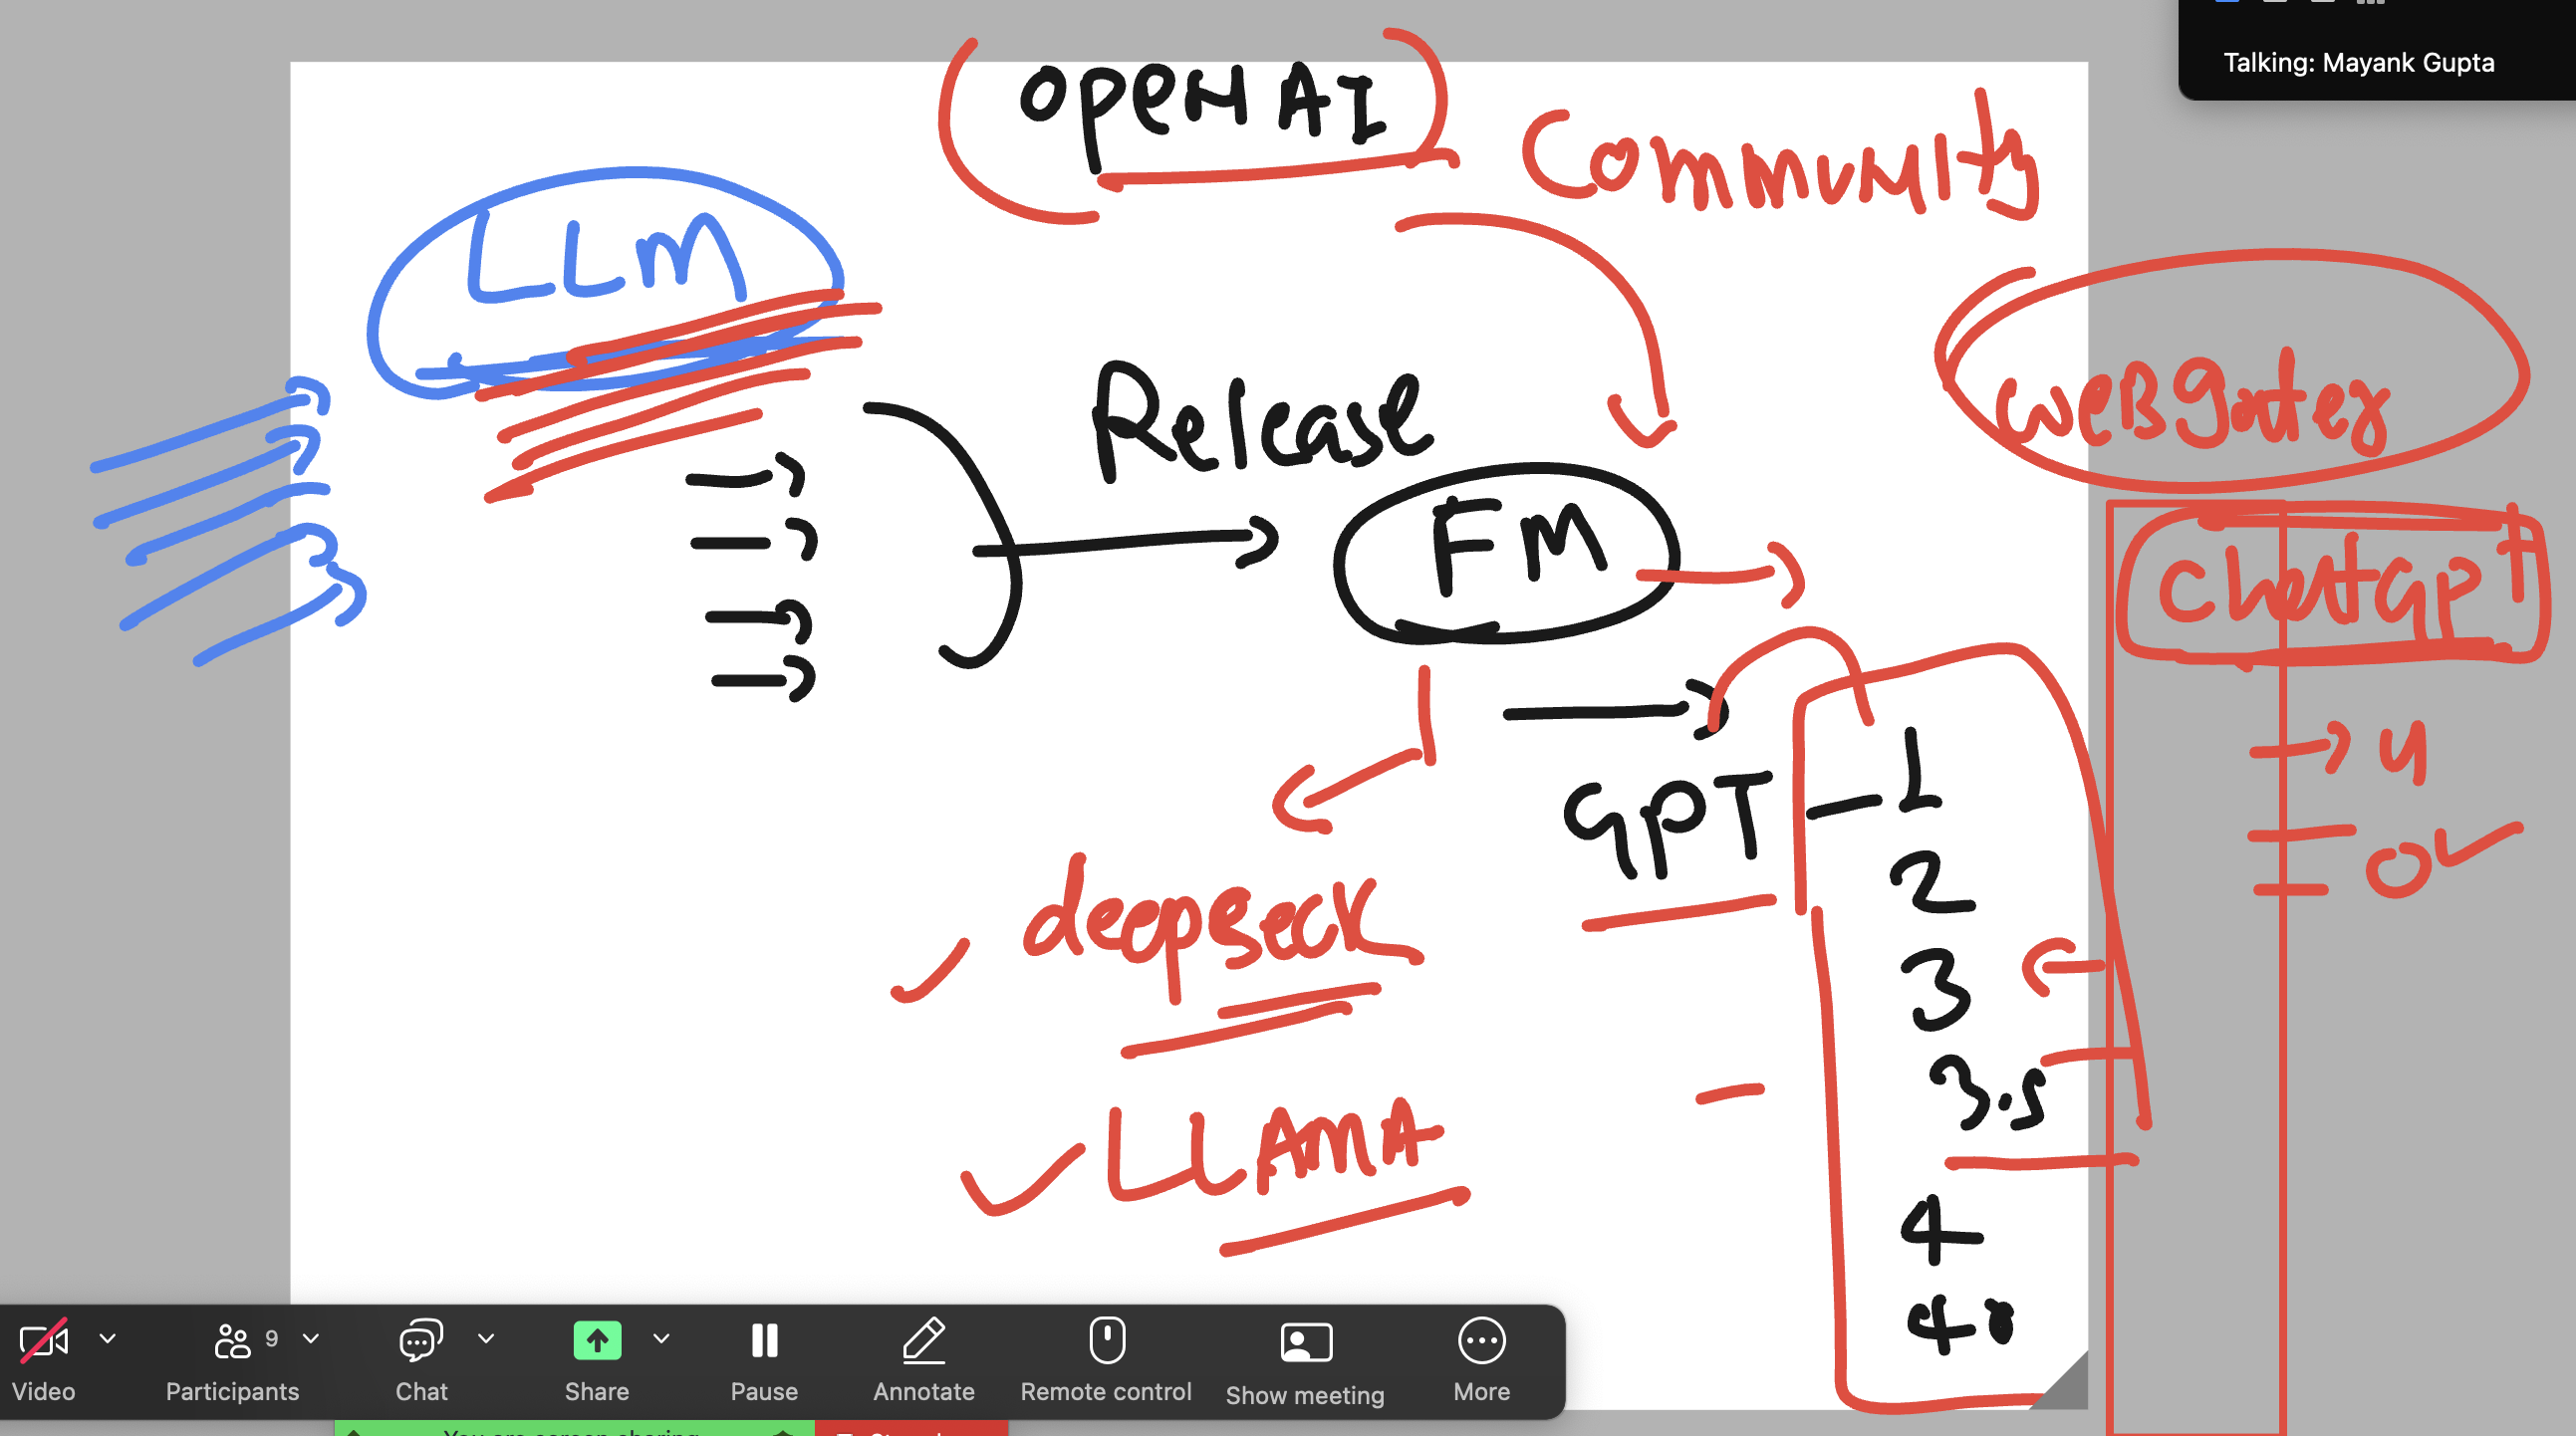 Talking: Mayank Gupta
OpenAI
Community
LLM
Release
FM
ChatGPT
4
GPT - 1
2
3
3.5
4
4o
deepseek
LLAMA
Video
Participants 9
Chat
Share
Pause
Annotate
Remote control
Show meeting
More
You are screen sharing